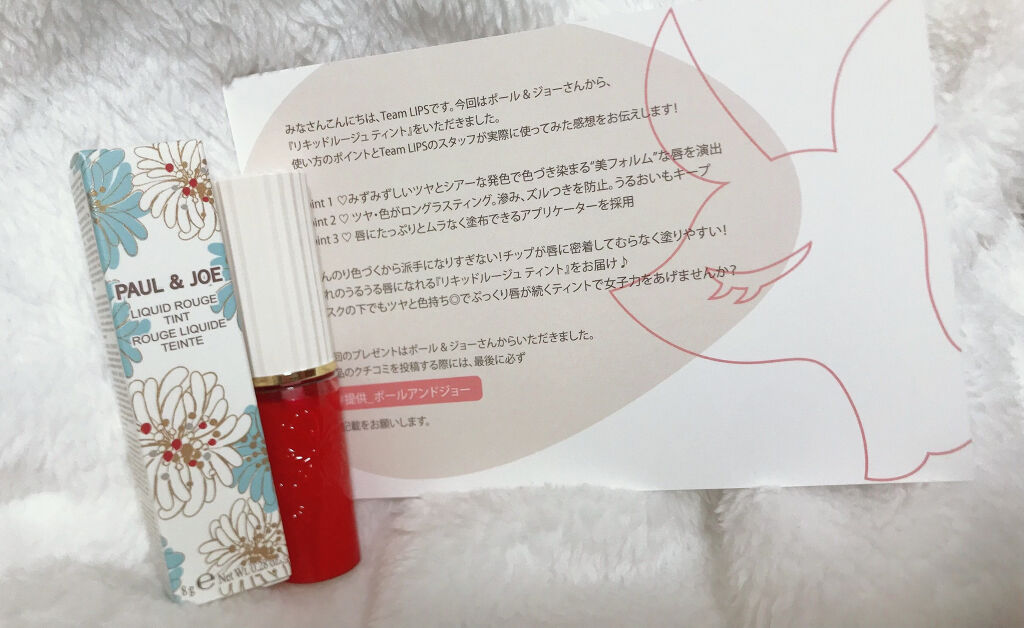 みなさんこんにちは、Team LIPSです。今回はポール＆ジョーさんから、
『リキッドルージュ ティント』をいただきました。
使い方のポイントとTeam LIPSのスタッフが実際に使ってみた感想をお伝えします！
int 1 ♡みずみずしいツヤとシアーな発色で色づき染まる“美フォルム”な唇を演出
int 2 ♡ ツヤ・色がロングラスティング。滲み、ズルつきを防止。うるおいもキープ
int 3 ♡ 唇にたっぷりとムラなく塗布できるアプリケーターを採用
んのり色づくから派手になりすぎない！チップが唇に密着してむらなく塗りやすい！
れのうるうる唇になれる『リキッドルージュ ティント』をお届け♪
スクの下でもツヤと色持ち◎でぷっくり唇が続くティントで女子力をあげませんか？
回のプレゼントはポール＆ジョーさんからいただきました。
品のクチコミを投稿する際には、最後に必ず
提供_ポールアンドジョー
記載をお願いします。
PAUL & JOE
LIQUID ROUGE
TINT
ROUGE LIQUIDE
TEINTE
8g ℮ Net Wt. 0.28 oz.